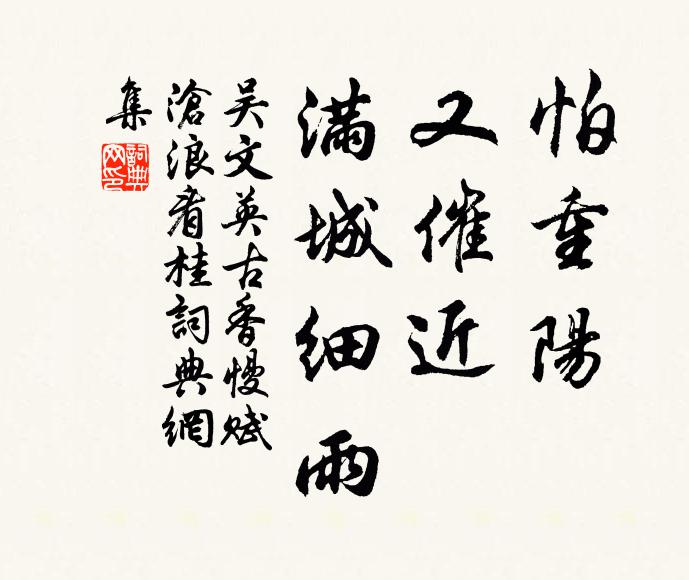 怕重陽
又催近
滿城細雨
吳文英古香慢賦
滄浪看桂詞典網
集
詞典網印